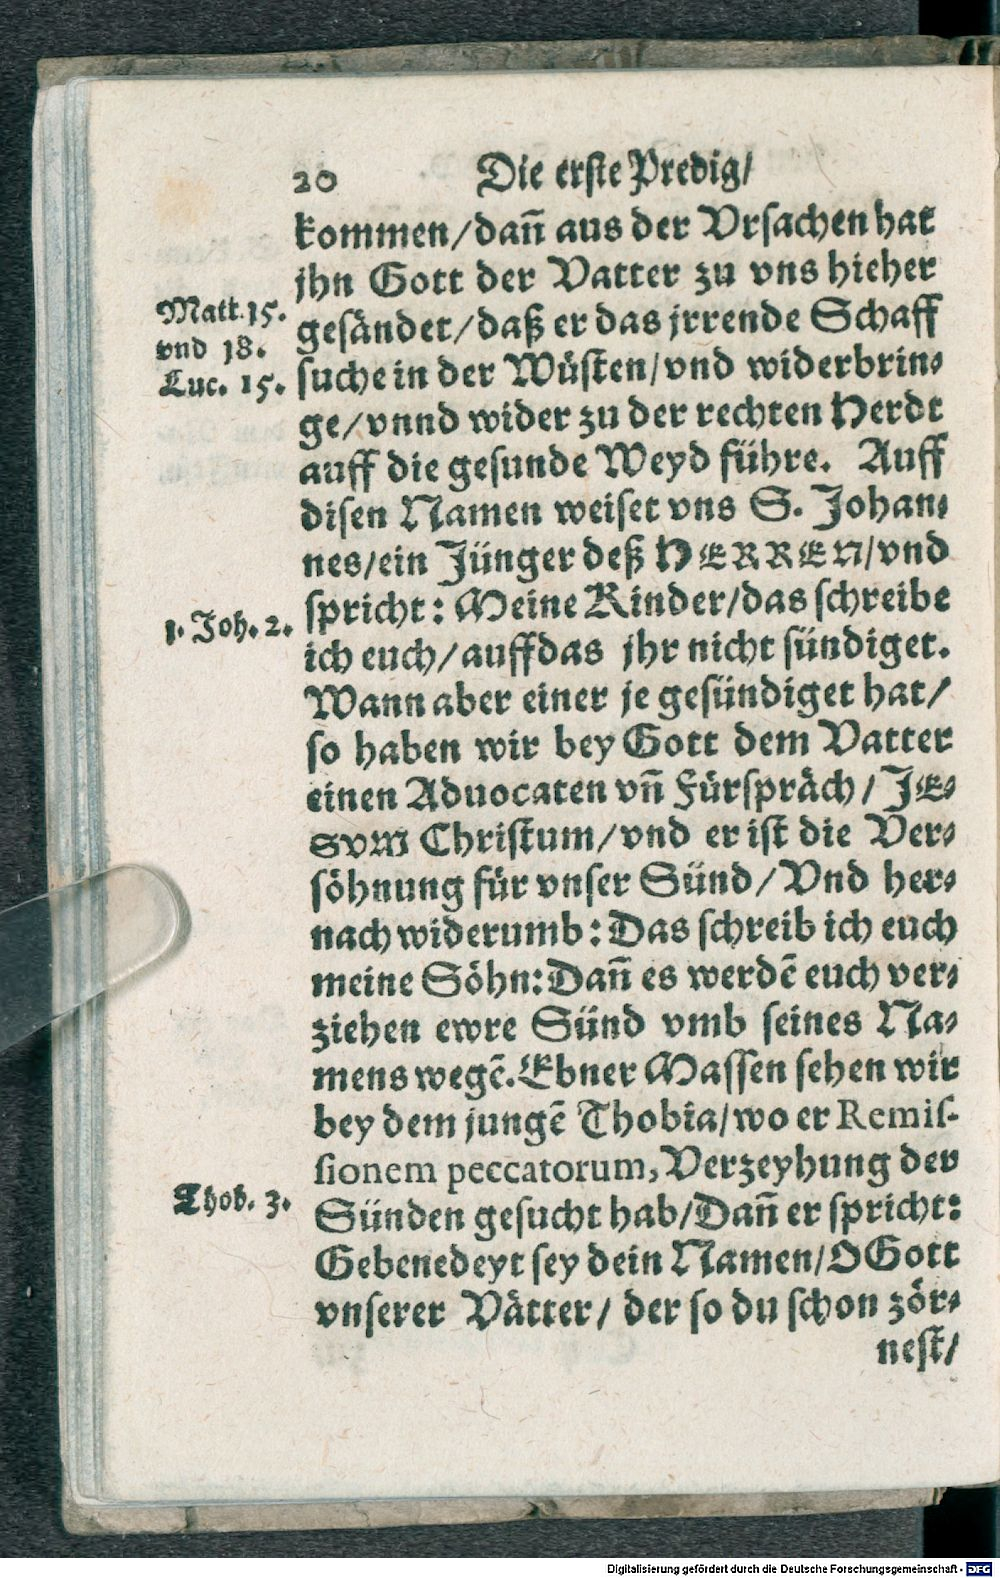 20 Die erste Predig/
kommen/dañ aus der Vrsachen hat
jhn Gott der Vatter zu vns hieher
Matt. 15.
gesändet/daß er das jrrende Schaff
vnd 18.
suche in der Wüsten/vnd widerbrin-
Luc. 15.
ge/vnnd wider zu der rechten Herdt
auff die gesunde Weyd führe. Auff
disen Namen weiset vns S. Johan-
nes/ein Jünger deß HERREN/vnd
spricht: Meine Kinder/das schreibe
1. Joh. 2.
ich euch/auffdas jhr nicht sündiget.
Wann aber einer je gesündiget hat/
so haben wir bey Gott dem Vatter
einen Aduocaten vñ Fürspräch/ JE-
SVM Christum/vnd er ist die Ver-
söhnung für vnser Sünd/Vnd her-
nach widerumb: Das schreib ich euch
meine Söhn: Dañ es werdẽ euch ver-
ziehen ewre Sünd vmb seines Na-
mens wegẽ. Ebner Massen sehen wir
bey dem jungẽ Thobia/wo er Remis-
sionem peccatorum, Verzeyhung der
Thob. 3.
Sünden gesucht hab/Dañ er spricht:
Gebenedeyt sey dein Namen/O Gott
vnserer Vätter/ der so du schon zör-
nest/
Digitalisierung gefördert durch die Deutsche Forschungsgemeinschaft - DFG